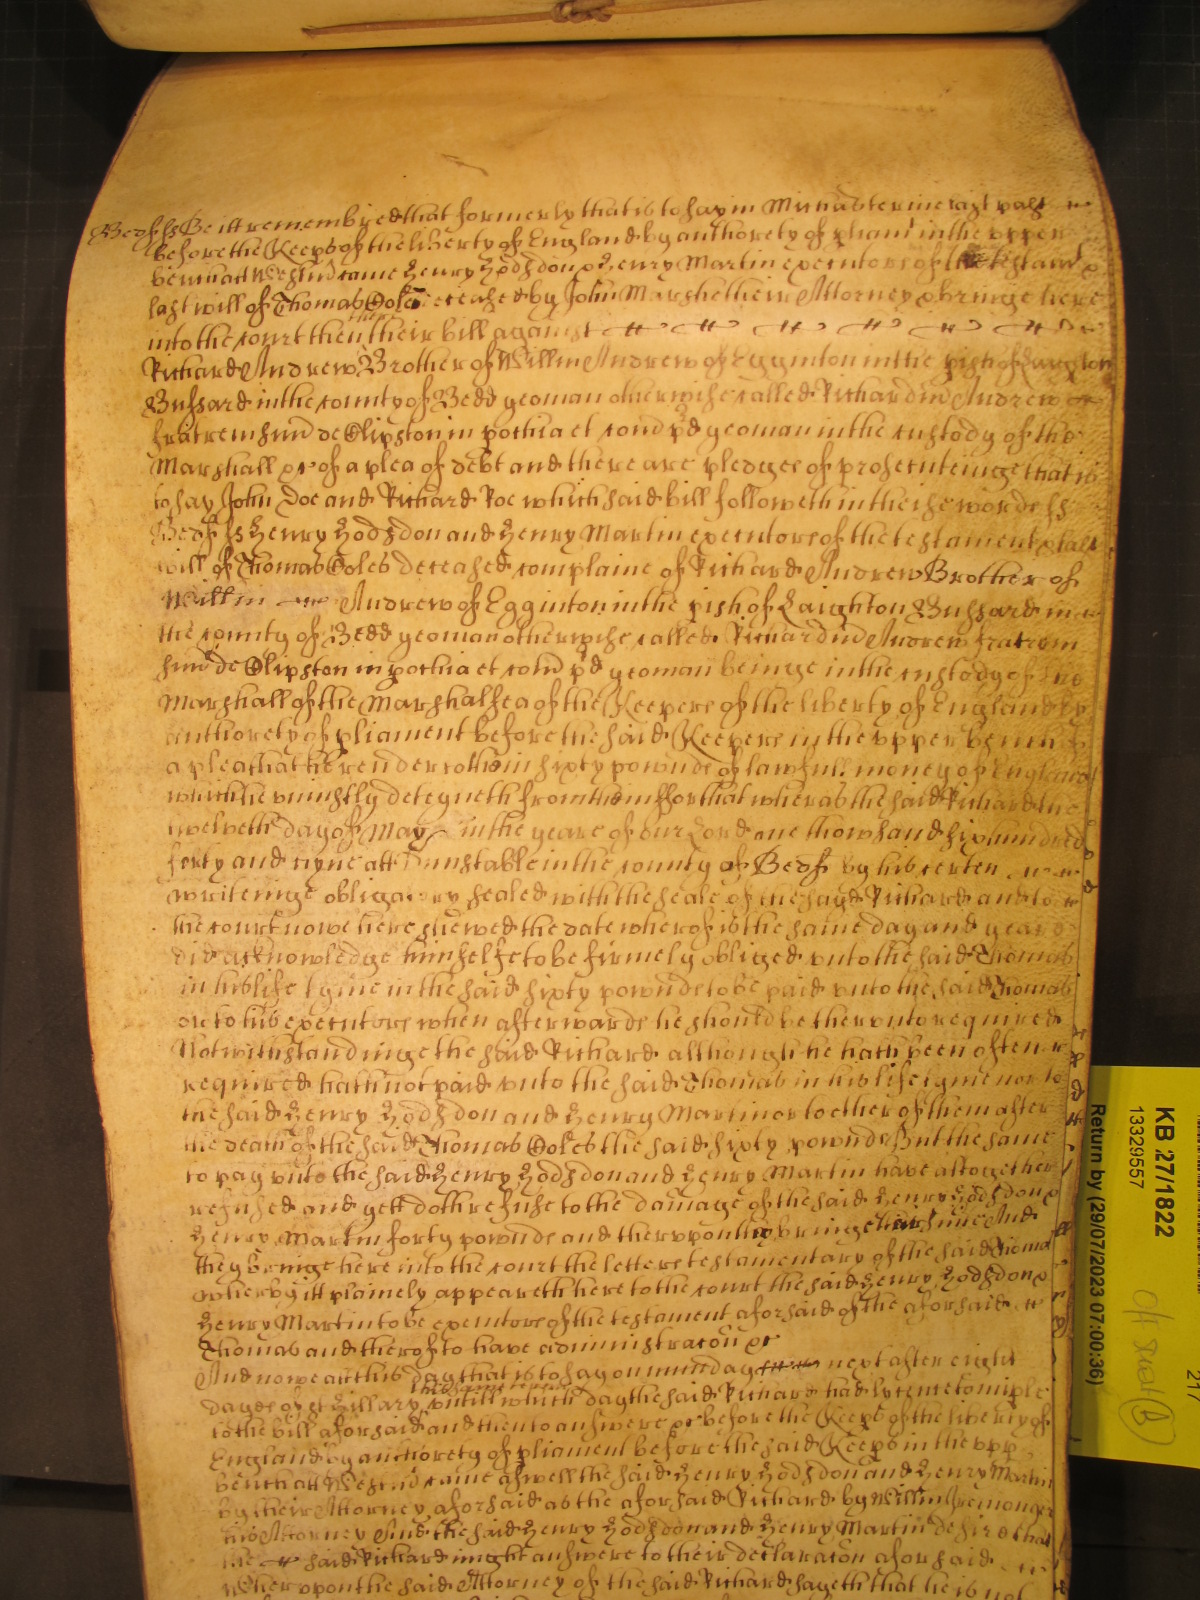 Bedf ss Be itt remembred that formerly that is to say in Michaelms terme last past
before the Keeps of the liberty of England by authorety of pliamt in the upper
bench att Westmr came Henry Hodsdon & Henry Martin executors of the testamt &
last will of Thomas Coles deceased by John Marsh their Attorney & bringe here
into the court then their bill against
Richard Andrew Brother of Willm Andrew of Egginton in the pish of Laighton
Bussard in the county of Bedd yeoman otherwise called Richardum Andrew
fratrem suu de Clipston in pochia et com pd yeoman in the custody of the
Marshall &c of a plea of debt and there are pledges of prosecuteinge that is
to say John Doe and Richard Roe which said bill followeth in theise words ss
Bedf ss Henry Hodsdon and Henry Martin executors of the testament & last
will of Thomas Coles deceased complaine of Richard Andrew Brother of
Willm Andrew of Egginton in the pish of Laighton Bussard in
the county of Bedd yeoman otherwise called Richardum Andrew fratrem
suu de Clipston in pochia et com pd yeoman beinge in the custody of the
Marshall of the Marshalsea of the Keepers of the liberty of England by
authorety of pliament before the said Keepers in the upper bench of
a plea that he render to them sixty pownds of lawfull money of England
which he uniustly deteyneth from them ffor that wheras the said Richard the
twelveth day of May in the yeare of our Lord one thowsand six hundred
forty and nyne att Dunstable in the county of Bedf by his certen
writeinge obligatory sealed with the seale of the sayd Richard and to
the court nowe here shewed the date wherof is the same day and yeare
did acknowledge himselfe to be firmely obliged unto the said Thomas
in his life tyme in the said sixty pownds to be paid unto the said Thomas
or to his executors when afterwards he should be therunto required
Notwithstandinge the said Richard although he hath been often
required hath not paid unto the said Thomas in his life tyme nor to
the said Henry Hodsdon and Henry Martin or to ether of them after
the death of the said Thomas Coles the said sixty pownds But the same
to pay unto the said Henry Hodsdon and Henry Martin have altogether
refused and yett doth refuse to the damage of the said Henry Hodsdon &
Henry Martin forty pownds and therupon they bringe their suite And
they bringe here into the court the letters testamentary of the said Thomas
wherby itt plainely appeareth here to the court the said Henry Hodsdon &
Henry Martin to be executors of the testament aforsaid of the aforsaid
Thomas and therof to have administracon &c
And nowe att this day that is to say on munday next after eight
dayes of St Hillary untill which day the said Richard had lycence to imple
to the bill aforsaid and then to answere &c before the Keeps of the liberty of
England by authorety of pliament before the said Keeps in the upp
bench att Westmr came aswell the said Henry Hodsdon and Henry Martin
by their Attorney aforsaid as the aforsaid Richard by Willm Iremonger
his Attorney And the said Henry Hodsdon and Henry Martin desired that
the said Richard might answere to their declaracon aforsaid
Wherupon the said Attorney of the said Richard sayeth that he is not
KB 27/1822
13329557
Return by (29/07/2023 07:00:36)
217